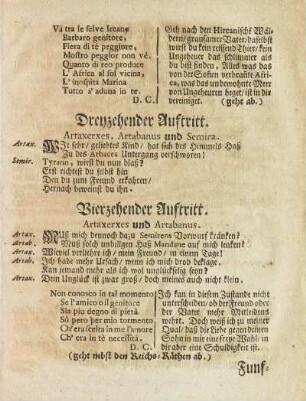 Va tra le selve Ircane
Barbaro genitore,
Fiera di te peggiore,
Mostro peggior non vè.
Quanto di reo produce
L' Africa al sol vicina,
L' inospita Marina
Tutto s'aduna in te.
D. C.
Geh nach den Hircanisch? Wäl-
dern grausamer Vater, daselbst
wirst du kein reissend Thier, kein
Ungeheuer das schlimmer als
du bist finden, Alles was das
von der Sonnen verbrañte Afri-
ca, was das unbewohnte Meer
von Ungeheuern heget, ist in dir
vereiniget. (geht ab.)
Dreyzehender Auftritt.
Artaxerxes. Artabanus und Semira.
Artax. Wie sehr, geliebtes Kind, hat sich des Himmels Haß
Zu des Arbaces Untergang verschworen!
Semir. Tyrann, wirst du nun blaß?
Erst richtest du selbst hin
Den du zum Freund erkohren,
Hernach beweinst du ihn.
Vierzehender Auftritt.
Artaxerxes und Artabanus.
Artax. Muß mich dennoch dazu Semirens Vorwurf kräncken?
Artab. Muß solch unbilligen Haß Mandane auf mich lencken!
Artax. Wieviel verliehre ich, mein Freund, in einem Tage!
Artab. Ich habe mehr Ursach, wenn ich mich drob beklage.
Kan jemand mehr als ich wol unglückselig seyn?
Artax. Dein Unglück ist zwar groß, doch meines auch nicht klein.
Non conosco in tal momento
Se l'amico o il genitore
Sia piu degno di pietà.
Sò però per mio tormento,
Ch'era scelta in me l'amore
Ch'era in tè necessità.
D. C.
Ich kan in diesem Zustande nicht
unterscheiden, ob der Freund oder
der Vater mehr Mitleidens
wehrt. Doch weiß ich zu meiner
Qual, daß die Liebe gegen deinem
Sohn in mir eine freye Wahl, in
dir aber eine Schuldigkeit ist.
(geht nebst den Reichs-Räthen ab.)
Funf-